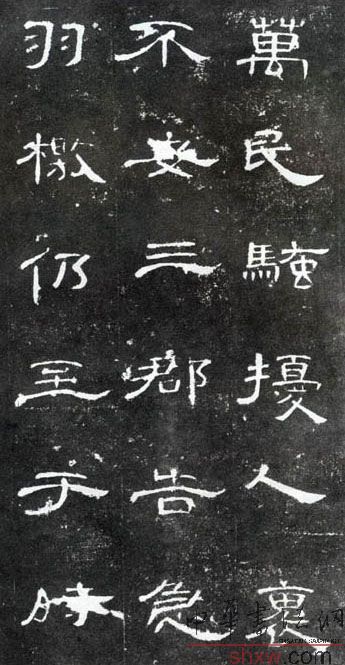 萬民騷擾人褱
不安三郡告急
羽檄仍至于時
中華書法網
shxw.com